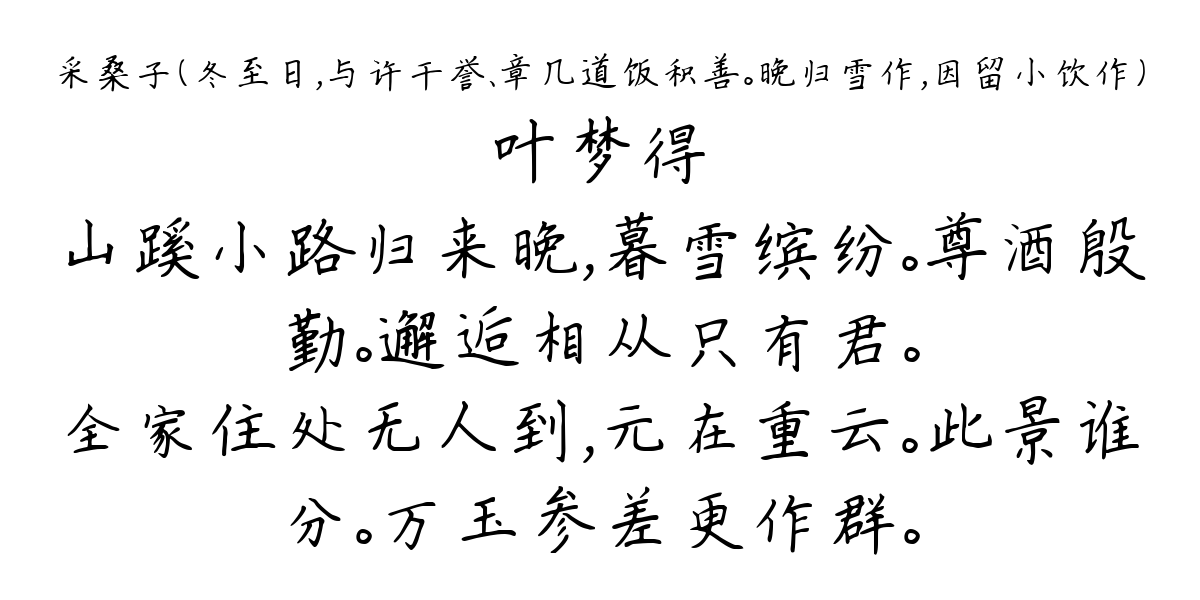 采桑子(冬至日,与许干誉、章几道饭积善。晚归雪作,因留小饮作)
叶梦得
山蹊小路归来晚,暮雪缤纷。尊酒殷
勤。邂逅相从只有君。
全家住处无人到,元在重云。此景谁
分。万玉参差更作群。